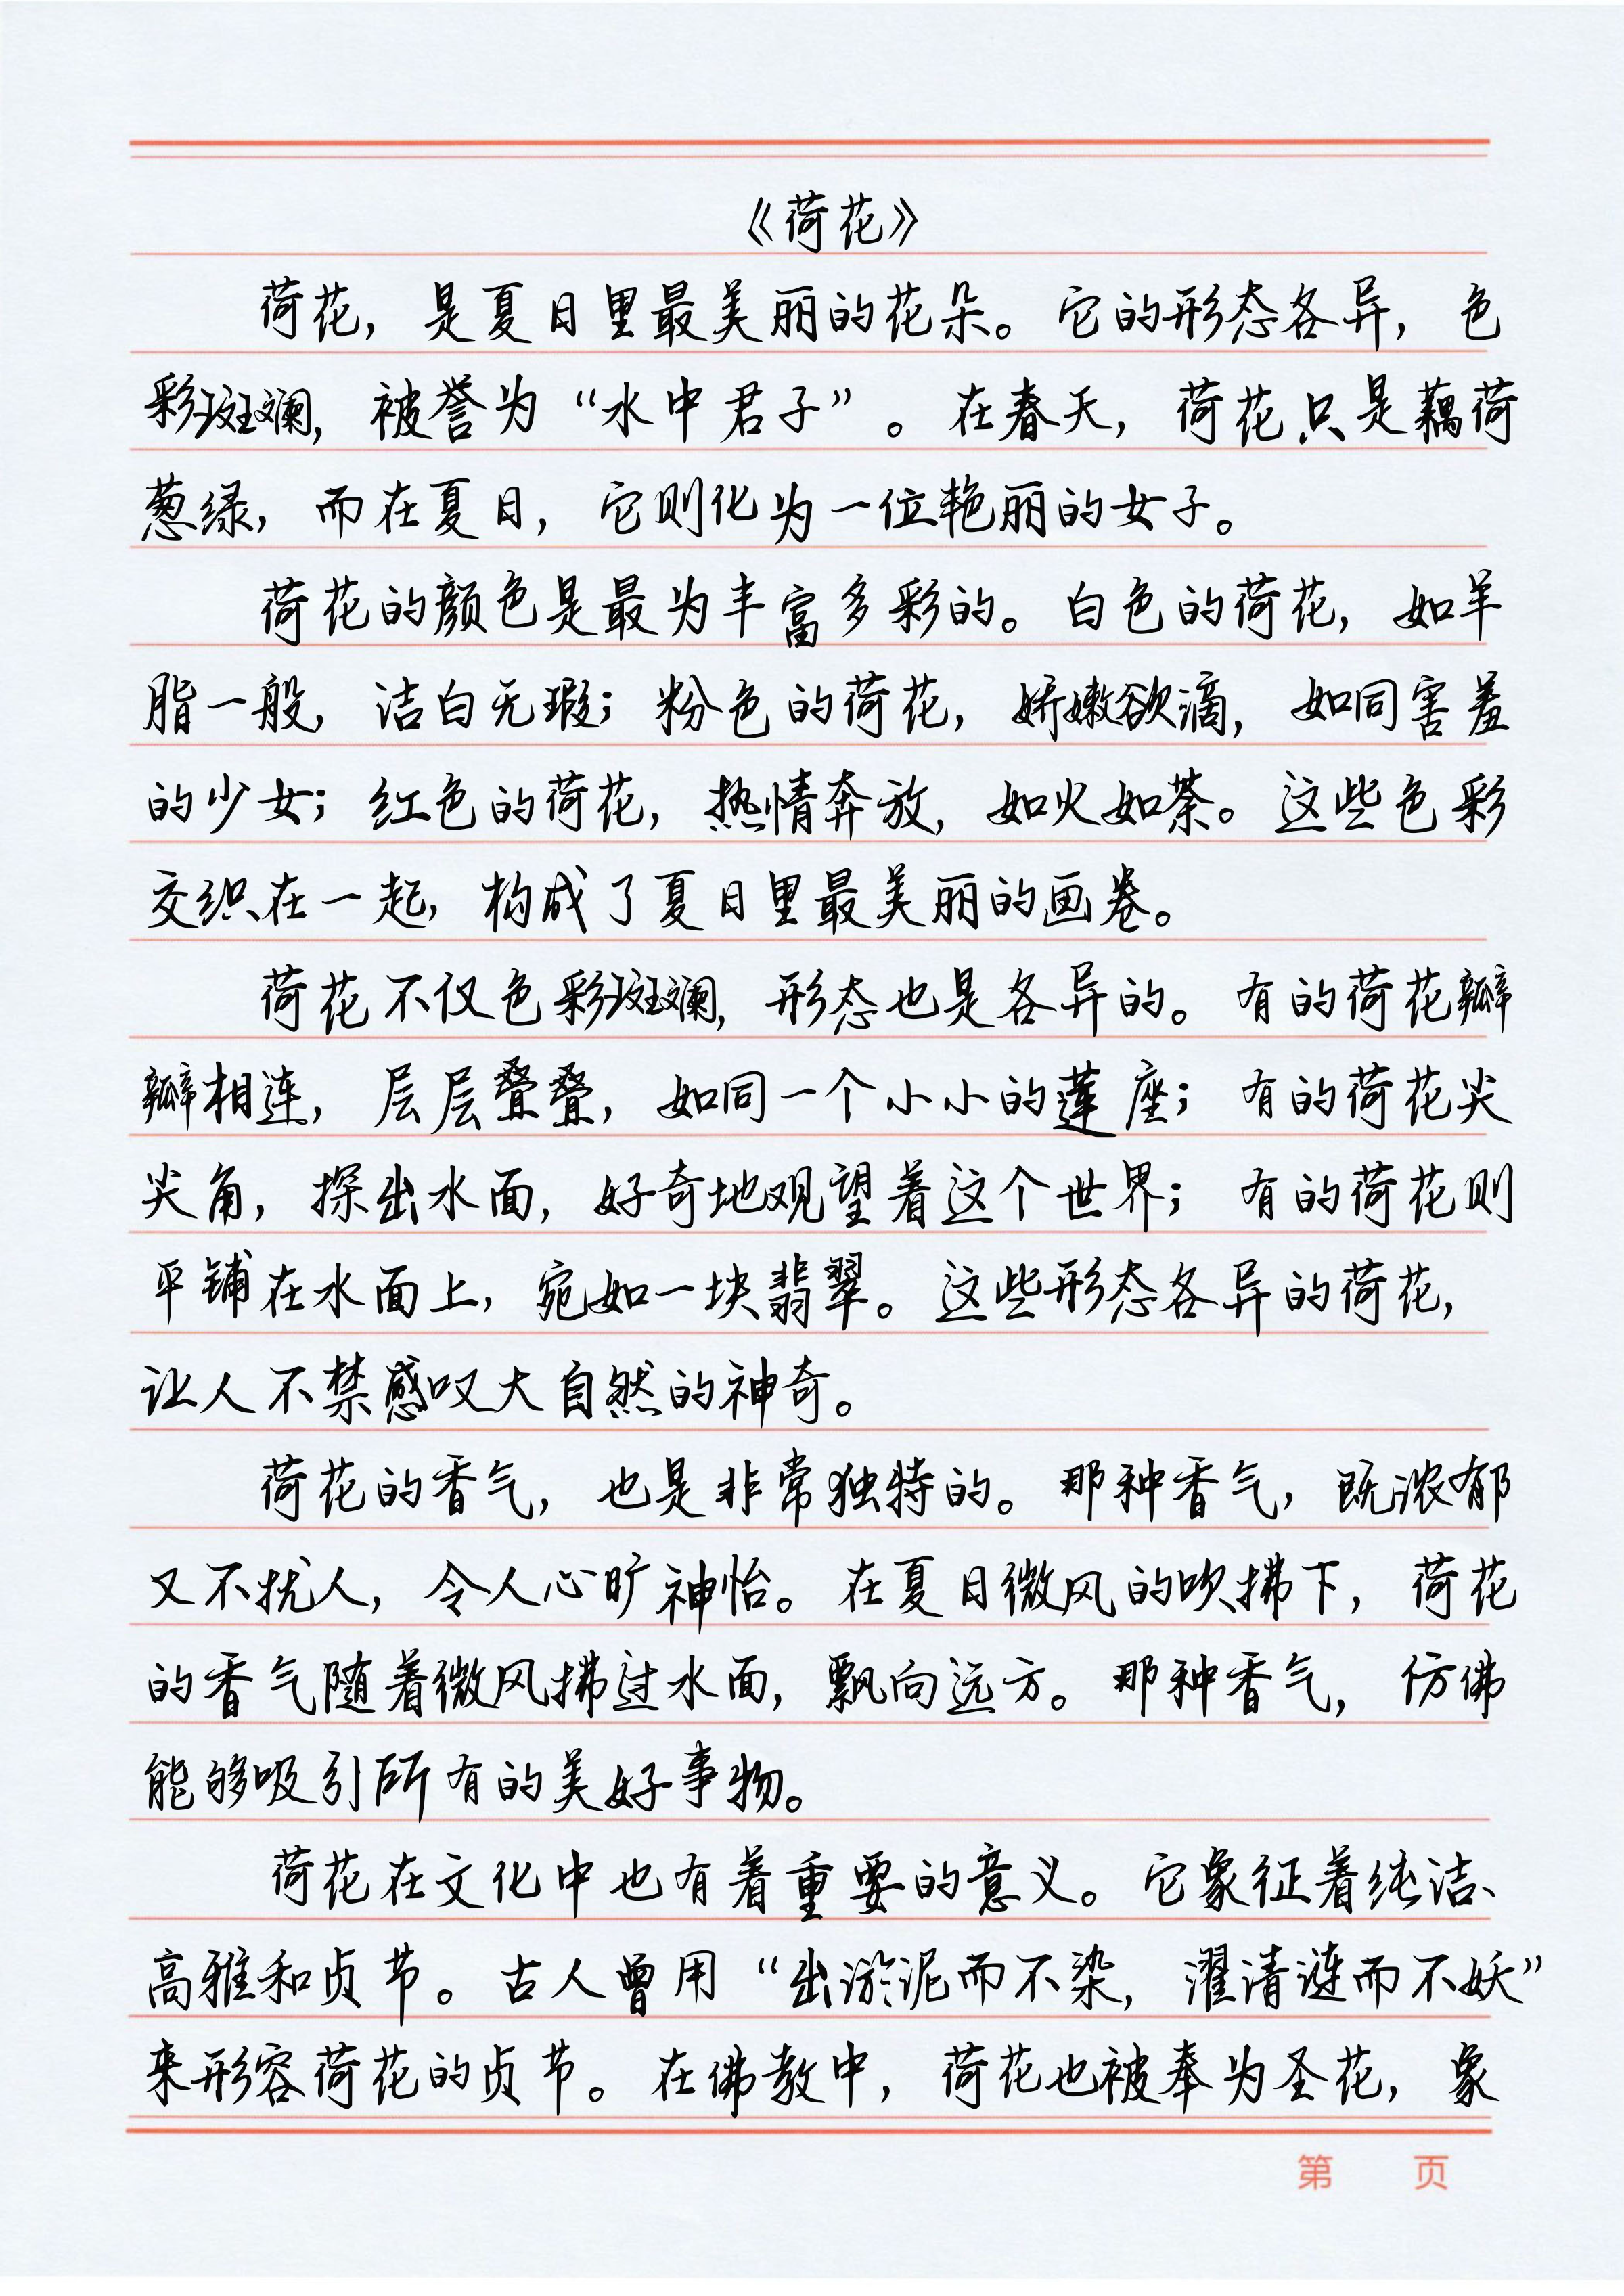 《荷花》
荷花，是夏日里最美丽的花朵。它的形态各异，色
彩斑斓，被誉为“水中君子”。在春天，荷花只是藕荷
葱绿，而在夏日，它则化为一位艳丽的女子。
荷花的颜色是最为丰富多彩的。白色的荷花，如羊
脂一般，洁白无瑕；粉色的荷花，娇嫩欲滴，如同害羞
的少女；红色的荷花，热情奔放，如火如荼。这些色彩
交织在一起，构成了夏日里最美丽的画卷。
荷花不仅色彩斑斓，形态也是各异的。有的荷花瓣
瓣相连，层层叠叠，如同一个小小的莲座；有的荷花尖
尖角，探出水面，好奇地观望着这个世界；有的荷花则
平铺在水面上，宛如一块翡翠。这些形态各异的荷花，
让人不禁感叹大自然的神奇。
荷花的香气，也是非常独特的。那种香气，既浓郁
又不扰人，令人心旷神怡。在夏日微风的吹拂下，荷花
的香气随着微风拂过水面，飘向远方。那种香气，仿佛
能够吸引所有的美好事物。
荷花在文化中也有着重要的意义。它象征着纯洁、
高雅和贞节。古人曾用“出淤泥而不染，濯清涟而不妖”
来形容荷花的贞节。在佛教中，荷花也被奉为圣花，象
第 页